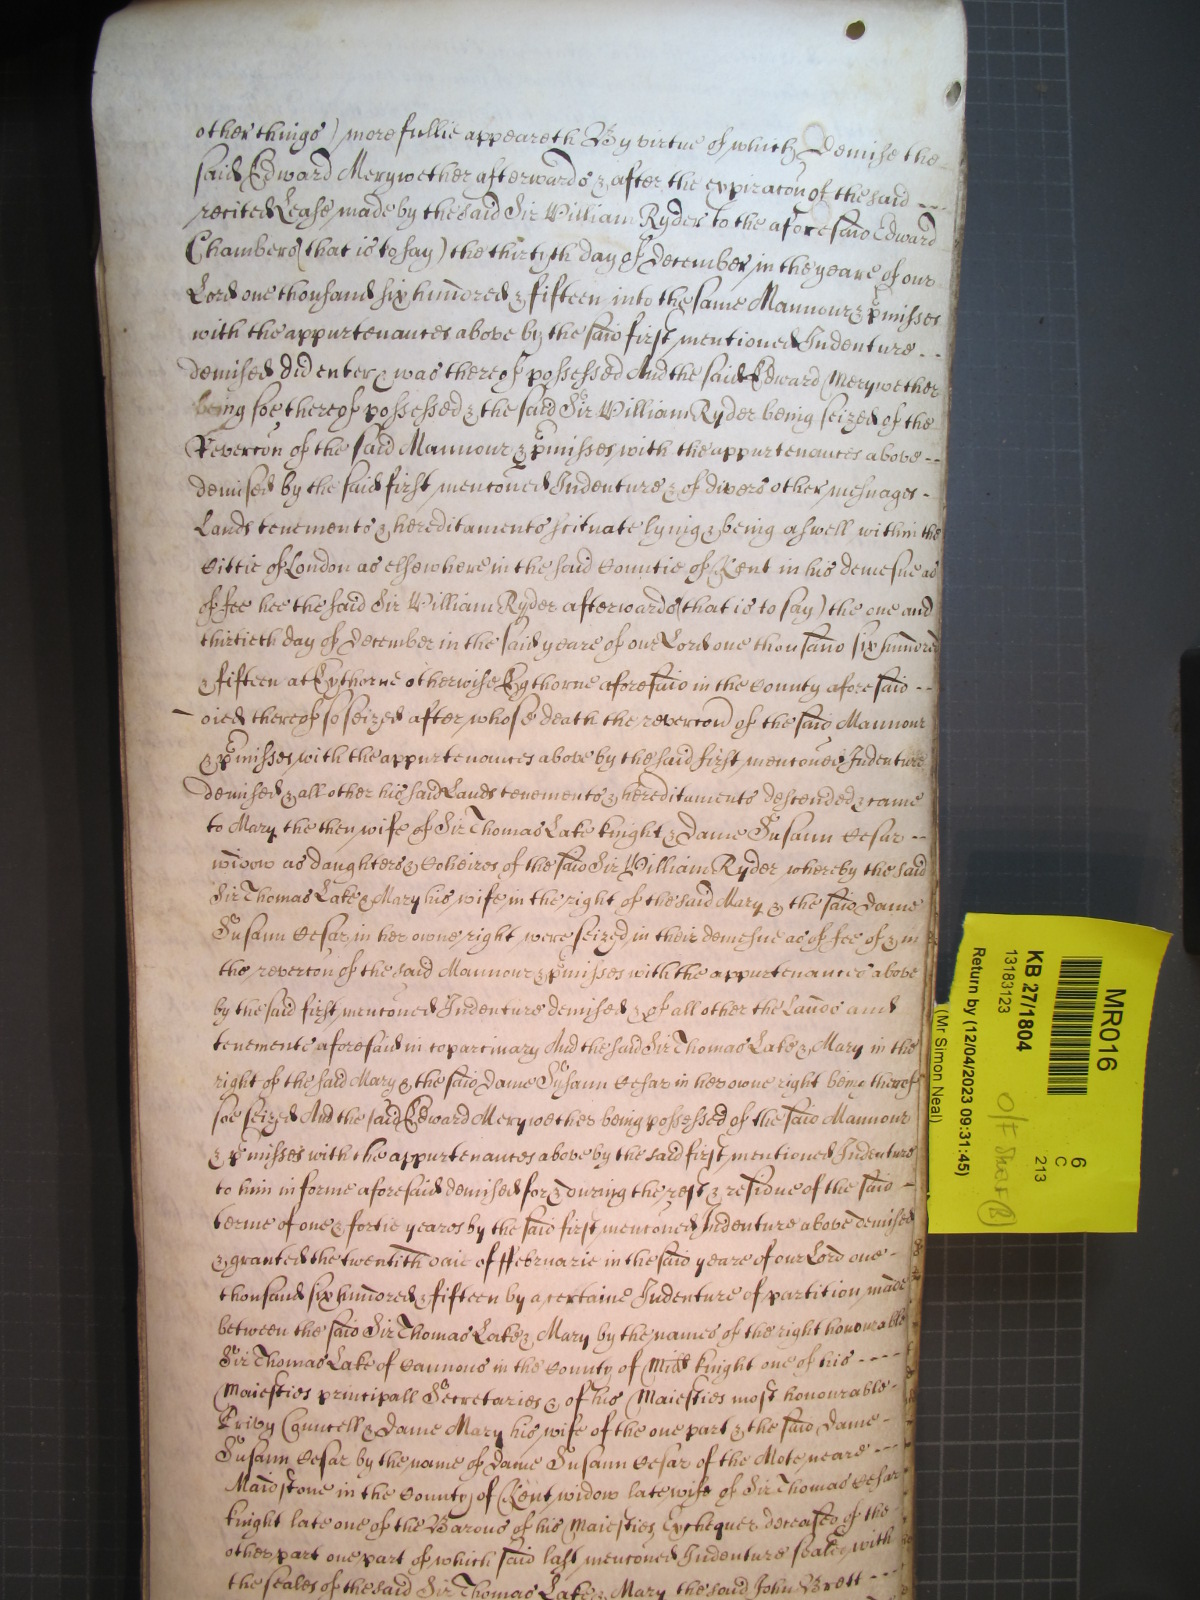 other things) more fullie appeareth By virtue of which Demise the
said Edward Merywether afterwards & after the expiracon of the said ---
recited Lease made by the said Sir William Ryder to the aforesaid Edward
Chambers (that is to say) the thirtyth day of December in the yeare of our
Lord one thousand six hundred & fifteen into the same Mannour & pmisses
with the appurtenances above by the said first mentioned Indenture --
demised did enter & was thereof possessed And the said Edward Merywether
being soe thereof possessed & the said Sir William Ryder being seized of the
Revercon of the said Mannour & pmisses with the appurtenances above --
demised by the said first mentoned Indenture & of divers other mesuages -
Lands tenements & hereditaments scituate lying & being aswell within the
Cittie of London as elsewhere in the said Countie of Kent in his demesne as
of fee hee the said Sir William Ryder afterwards (that is to say) the one and
thirtieth day of December in the said yeare of our Lord one thousand six hundred
& fifteen at Eythorne otherwise Eythorne aforesaid in the County aforesaid --
died thereof so seized after whose death the revercon of the said Mannour
& pmisses with the appurtenances above by the said first mentoned Indenture
demised & all other his said Lands tenements & hereditaments descended & came
to Mary the then wife of Sir Thomas Lake knight & Dame Susann Cesar --
widow as daughters & Coheires of the said Sir William Ryder whereby the said
Sir Thomas Lake & Mary his wife in the right of the said Mary & the said Dame
Susann Cesar in her owne right were seized in their demesne as of fee of & in
the revercon of the said Mannour & pmisses with the appurtenances above
by the said first mentoned Indenture demised & of all other the Lands and
tenements aforesaid in coparcinary And the said Sir Thomas Lake & Mary in the
right of the said Mary & the said Dame Susann Cesar in her owne right being thereof
soe seized And the said Edward Merywether being possessed of the said Mannour
& pmisses with the appurtenances above by the said first mentioned Indenture
to him in forme aforesaid demised for & during the rest & residue of the said -
terme of one & fortie yeares by the said first mentoned Indenture above demised
& granted the twentith daie of ffebruarie in the said yeare of our Lord one -
thousand six hundred & fifteen by a certaine Indenture of partition made
between the said Sir Thomas Lake & Mary by the names of the right honourable
Sir Thomas Lake of Cannons in the County of Midd knight one of his ----
Maiesties principall Secretaries & of his Maiesties most honourable -
Privy Councell & Dame Mary his wife of the one part & the said Dame -
Susann Cesar by the name of Dame Susann Cesar of the Mote neare ---
Maidstone in the County of Kent widow late wife of Sir Thomas Cesar
knight late one of the Barons of his Maiesties Exchequer deceased of the
other part one part of which said last mentoned Indenture sealed with
the seales of the said Sir Thomas Lake & Mary the said John Brett ---
MR016
KB 27/1804
13183123
Return by (12/04/2023 09:31:45)
(Mr Simon Neal)
6
C
213